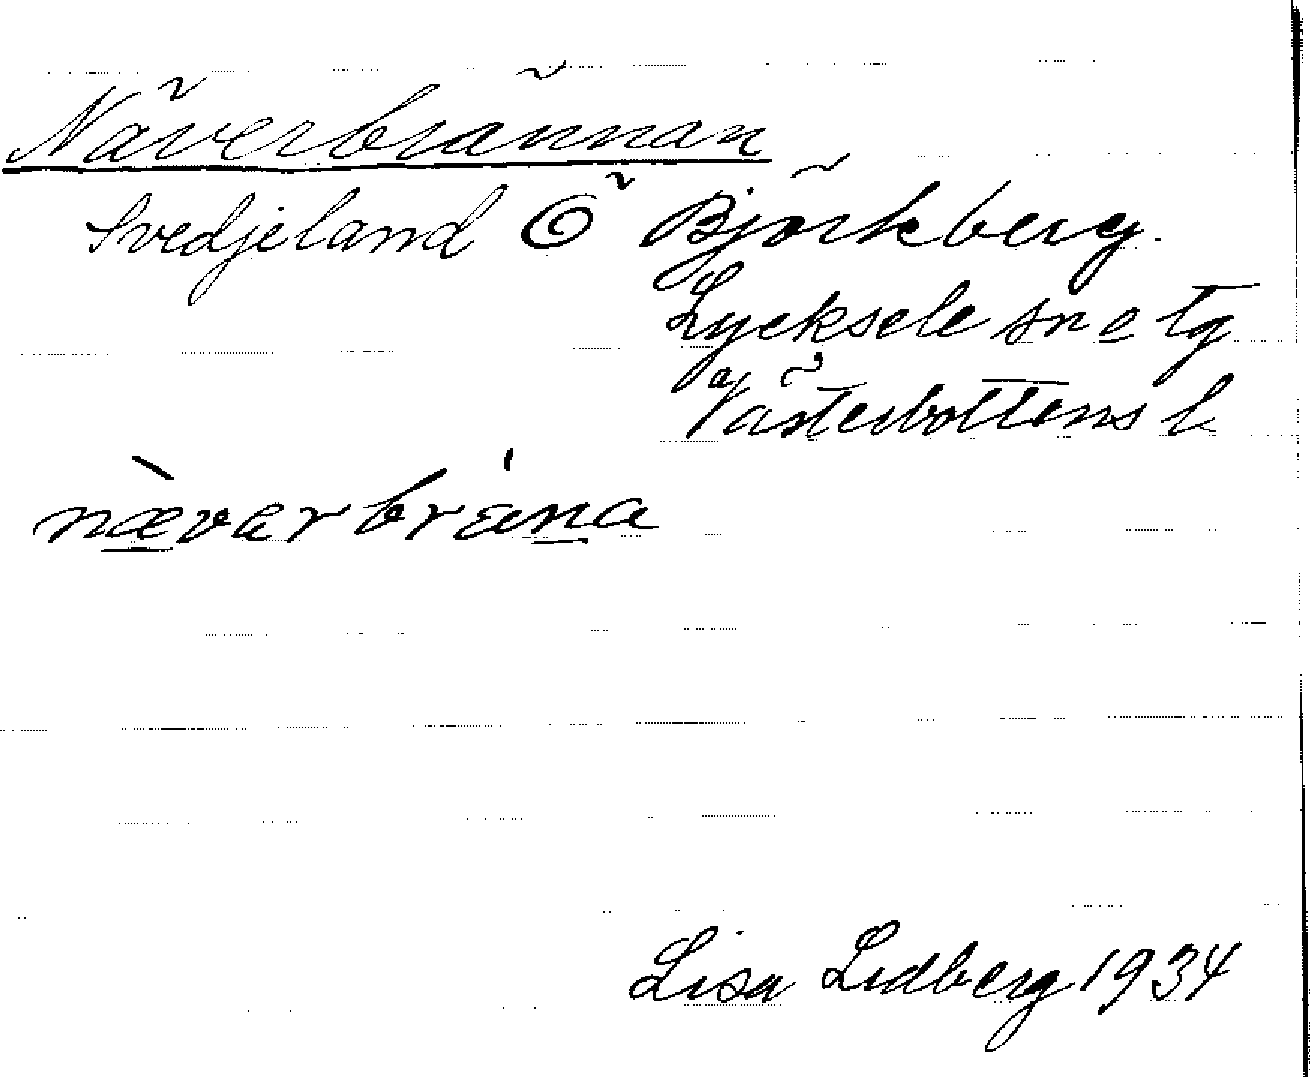 Näverbrännan
Svedjeland Ö Björkberg.
Lycksele sn o tg
Västerbottens l.
nævərbræna
Lisa Lidberg 1934